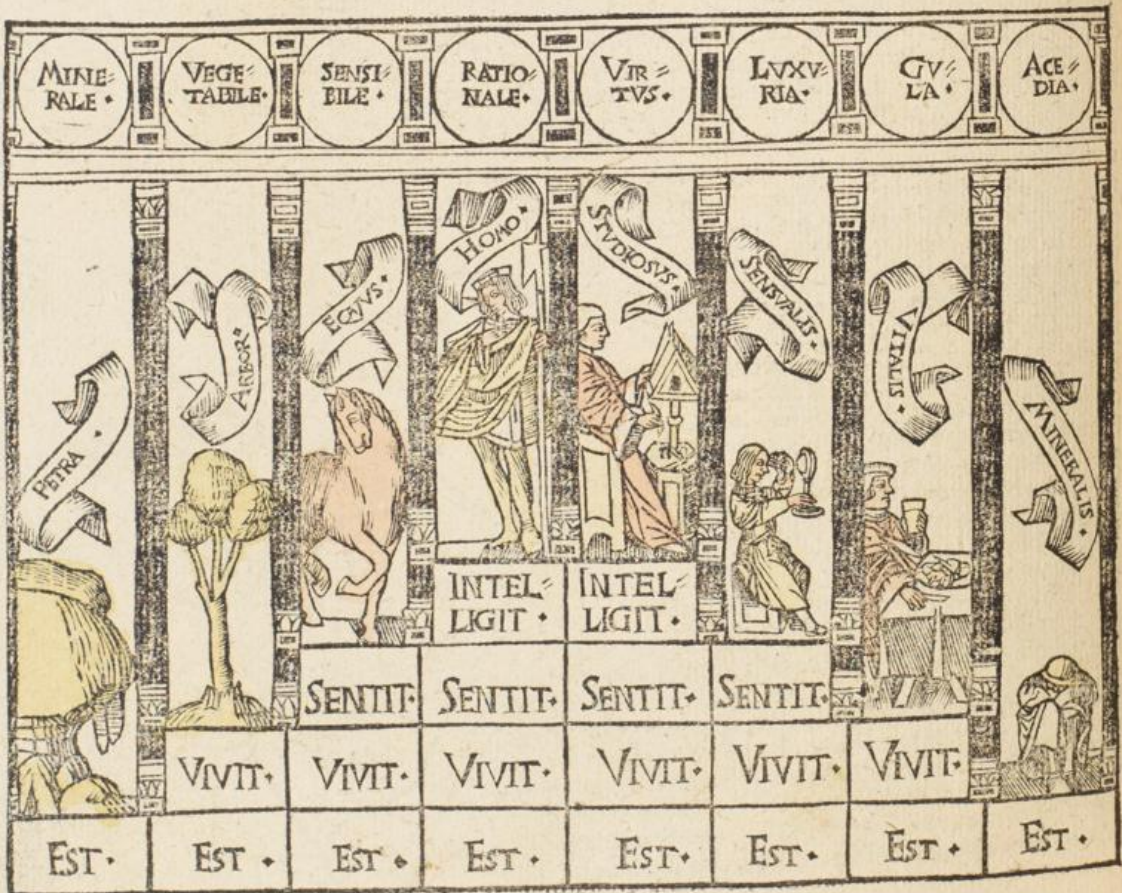 MINE=
RALE·
VEGE=
TABILE·
SENSI=
BILE·
RATIO=
NALE·
VIR=
TVS·
LVXV=
RIA·
GV=
LA·
ACE=
DIA·
PETRA·
ARBOR·
EQVVS·
HOMO·
STVDIOSVS·
SENSVALIS·
VITALIS·
MINERALIS·
INTEL=
LIGIT·
INTEL=
LIGIT·
SENTIT· SENTIT· SENTIT· SENTIT·
VIVIT· VIVIT· VIVIT· VIVIT· VIVIT· VIVIT·
EST· EST· EST· EST· EST· EST· EST· EST·